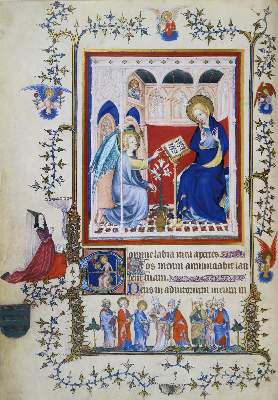 Domine labia mea aperies
Et os meum annunciabit lau
dem tuam.
Deus in adiutorium meum in